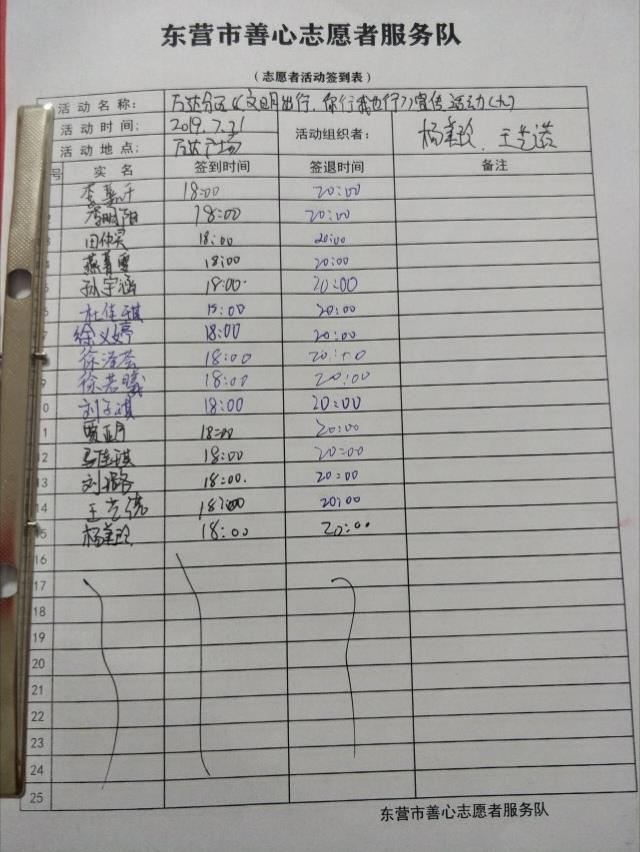 东营市善心志愿者服务队
（志愿者活动签到表）
活动名称： 万达分区《文明出行，你行我也行》宣传活动(九)
活动时间： 2019.7.31 活动组织者：
活动地点： 万达广场
号 实名 签到时间 签退时间 备注
18:00 20:00
18:00 20:00
18:00 20:00
18:00 20:00
孙宇涵 18:00 20:00
杜佳琪 18:00 20:00
徐义婷 18:00 20:00
18:00 20:00
9 徐若曦 18:00 20:00
0 刘子琪 18:00 20:00
1 18:00 20:00
12 马佳琪 18:00 20:00
13 18:00 20:00
14 18:00 20:00
15 18:00 20:00
16
17
18
19
20
21
22
23
24
25
东营市善心志愿者服务队